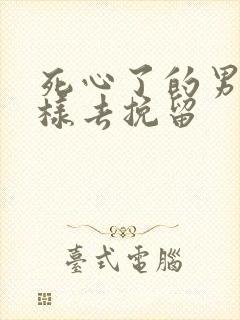 死心了的男
樣去挽留
臺式電腦